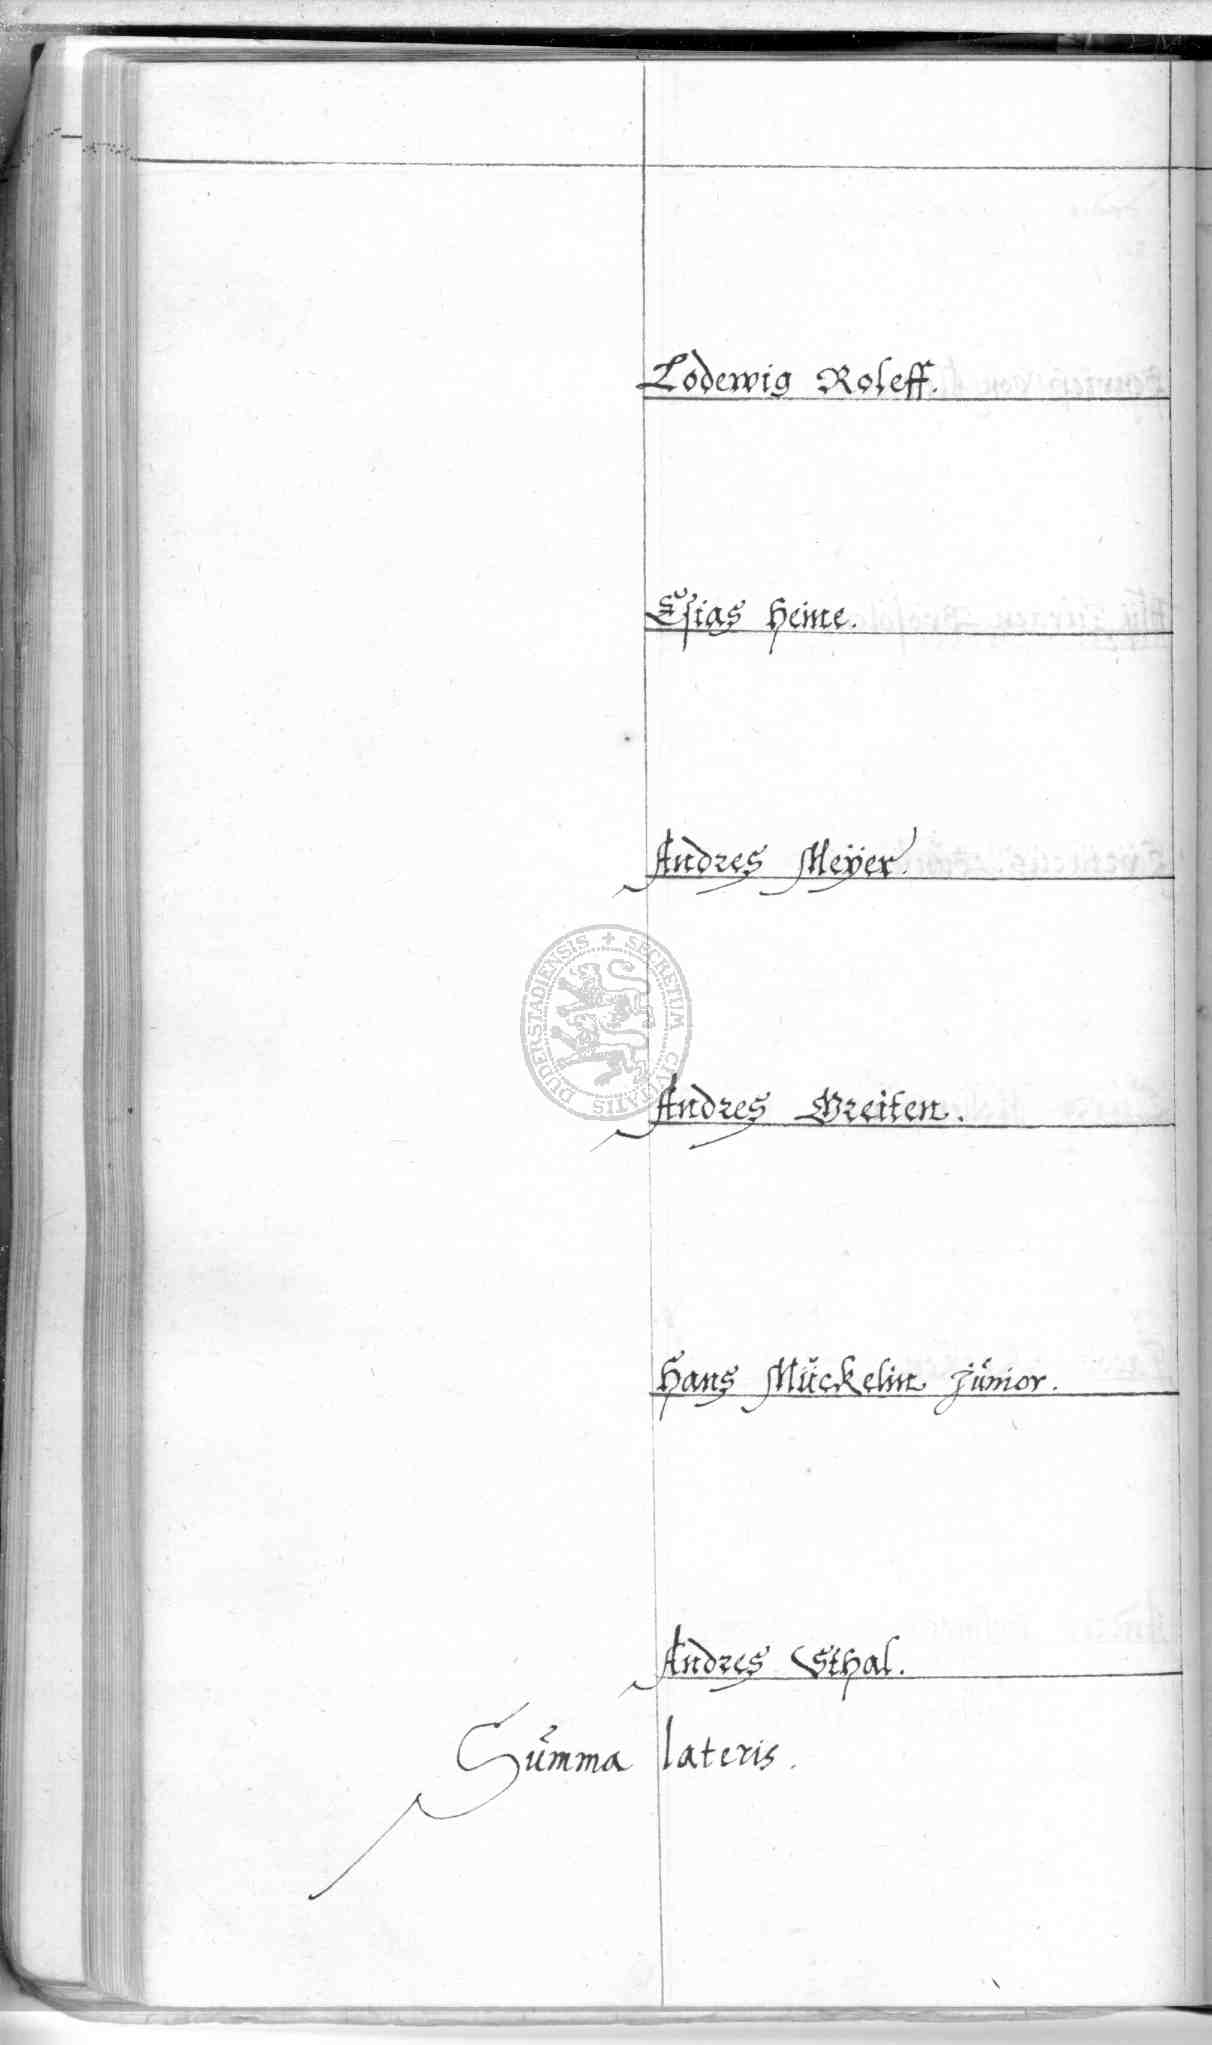 Lodewig Roleff.
Esias Heine.
Andres Meÿer.
SECRETUM CIVITATIS DUDERSTADIENSIS
Andres Greifen.
Hans Mückelin Jünior.
Andres Sthal.
Sümma lateris.